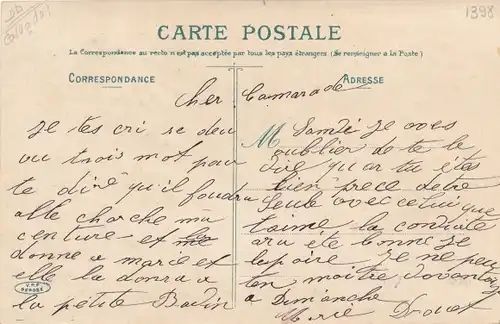 1398
CARTE POSTALE
La Correspondance au recto n'est pas acceptée par tous les pays étrangers (Se renseigner à la Poste)
CORRESPONDANCE
ADRESSE
Cher Camarade
je tes cri se deu
ou trois mot pour
te dire qu'il foudra
alle cherche ma
centure et
donne a marie et
elle la donra a
la petite Badin
M Samdi je aves
oublier de te le
dire
bien
Seule avec celui que
taime la
ara été bonne je
lespoire je ne peu
ten maitre davantage
a Dimanche
Marie Drouet
V.P.F